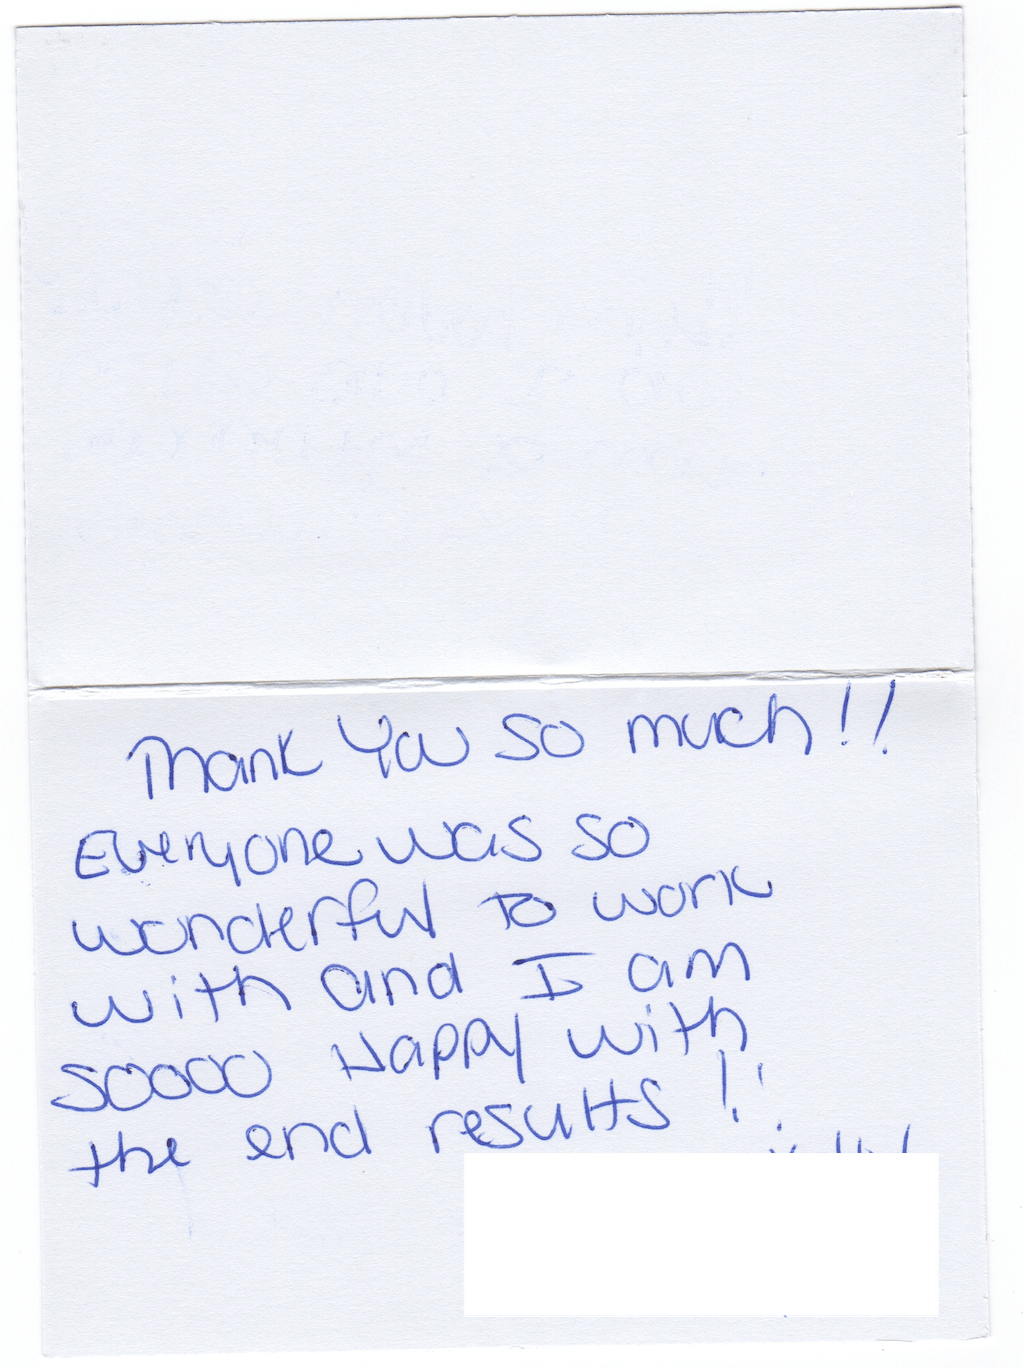 Thank You so much!!
Everyone was so
wonderful to work
with and I am
soooo Happy with
the end results!